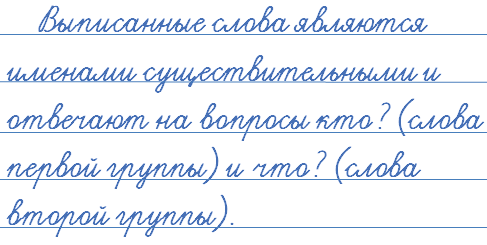 Выписанные слова являются
именами существительными и
отвечают на вопросы кто? (слова
первой группы) и что? (слова
второй группы).